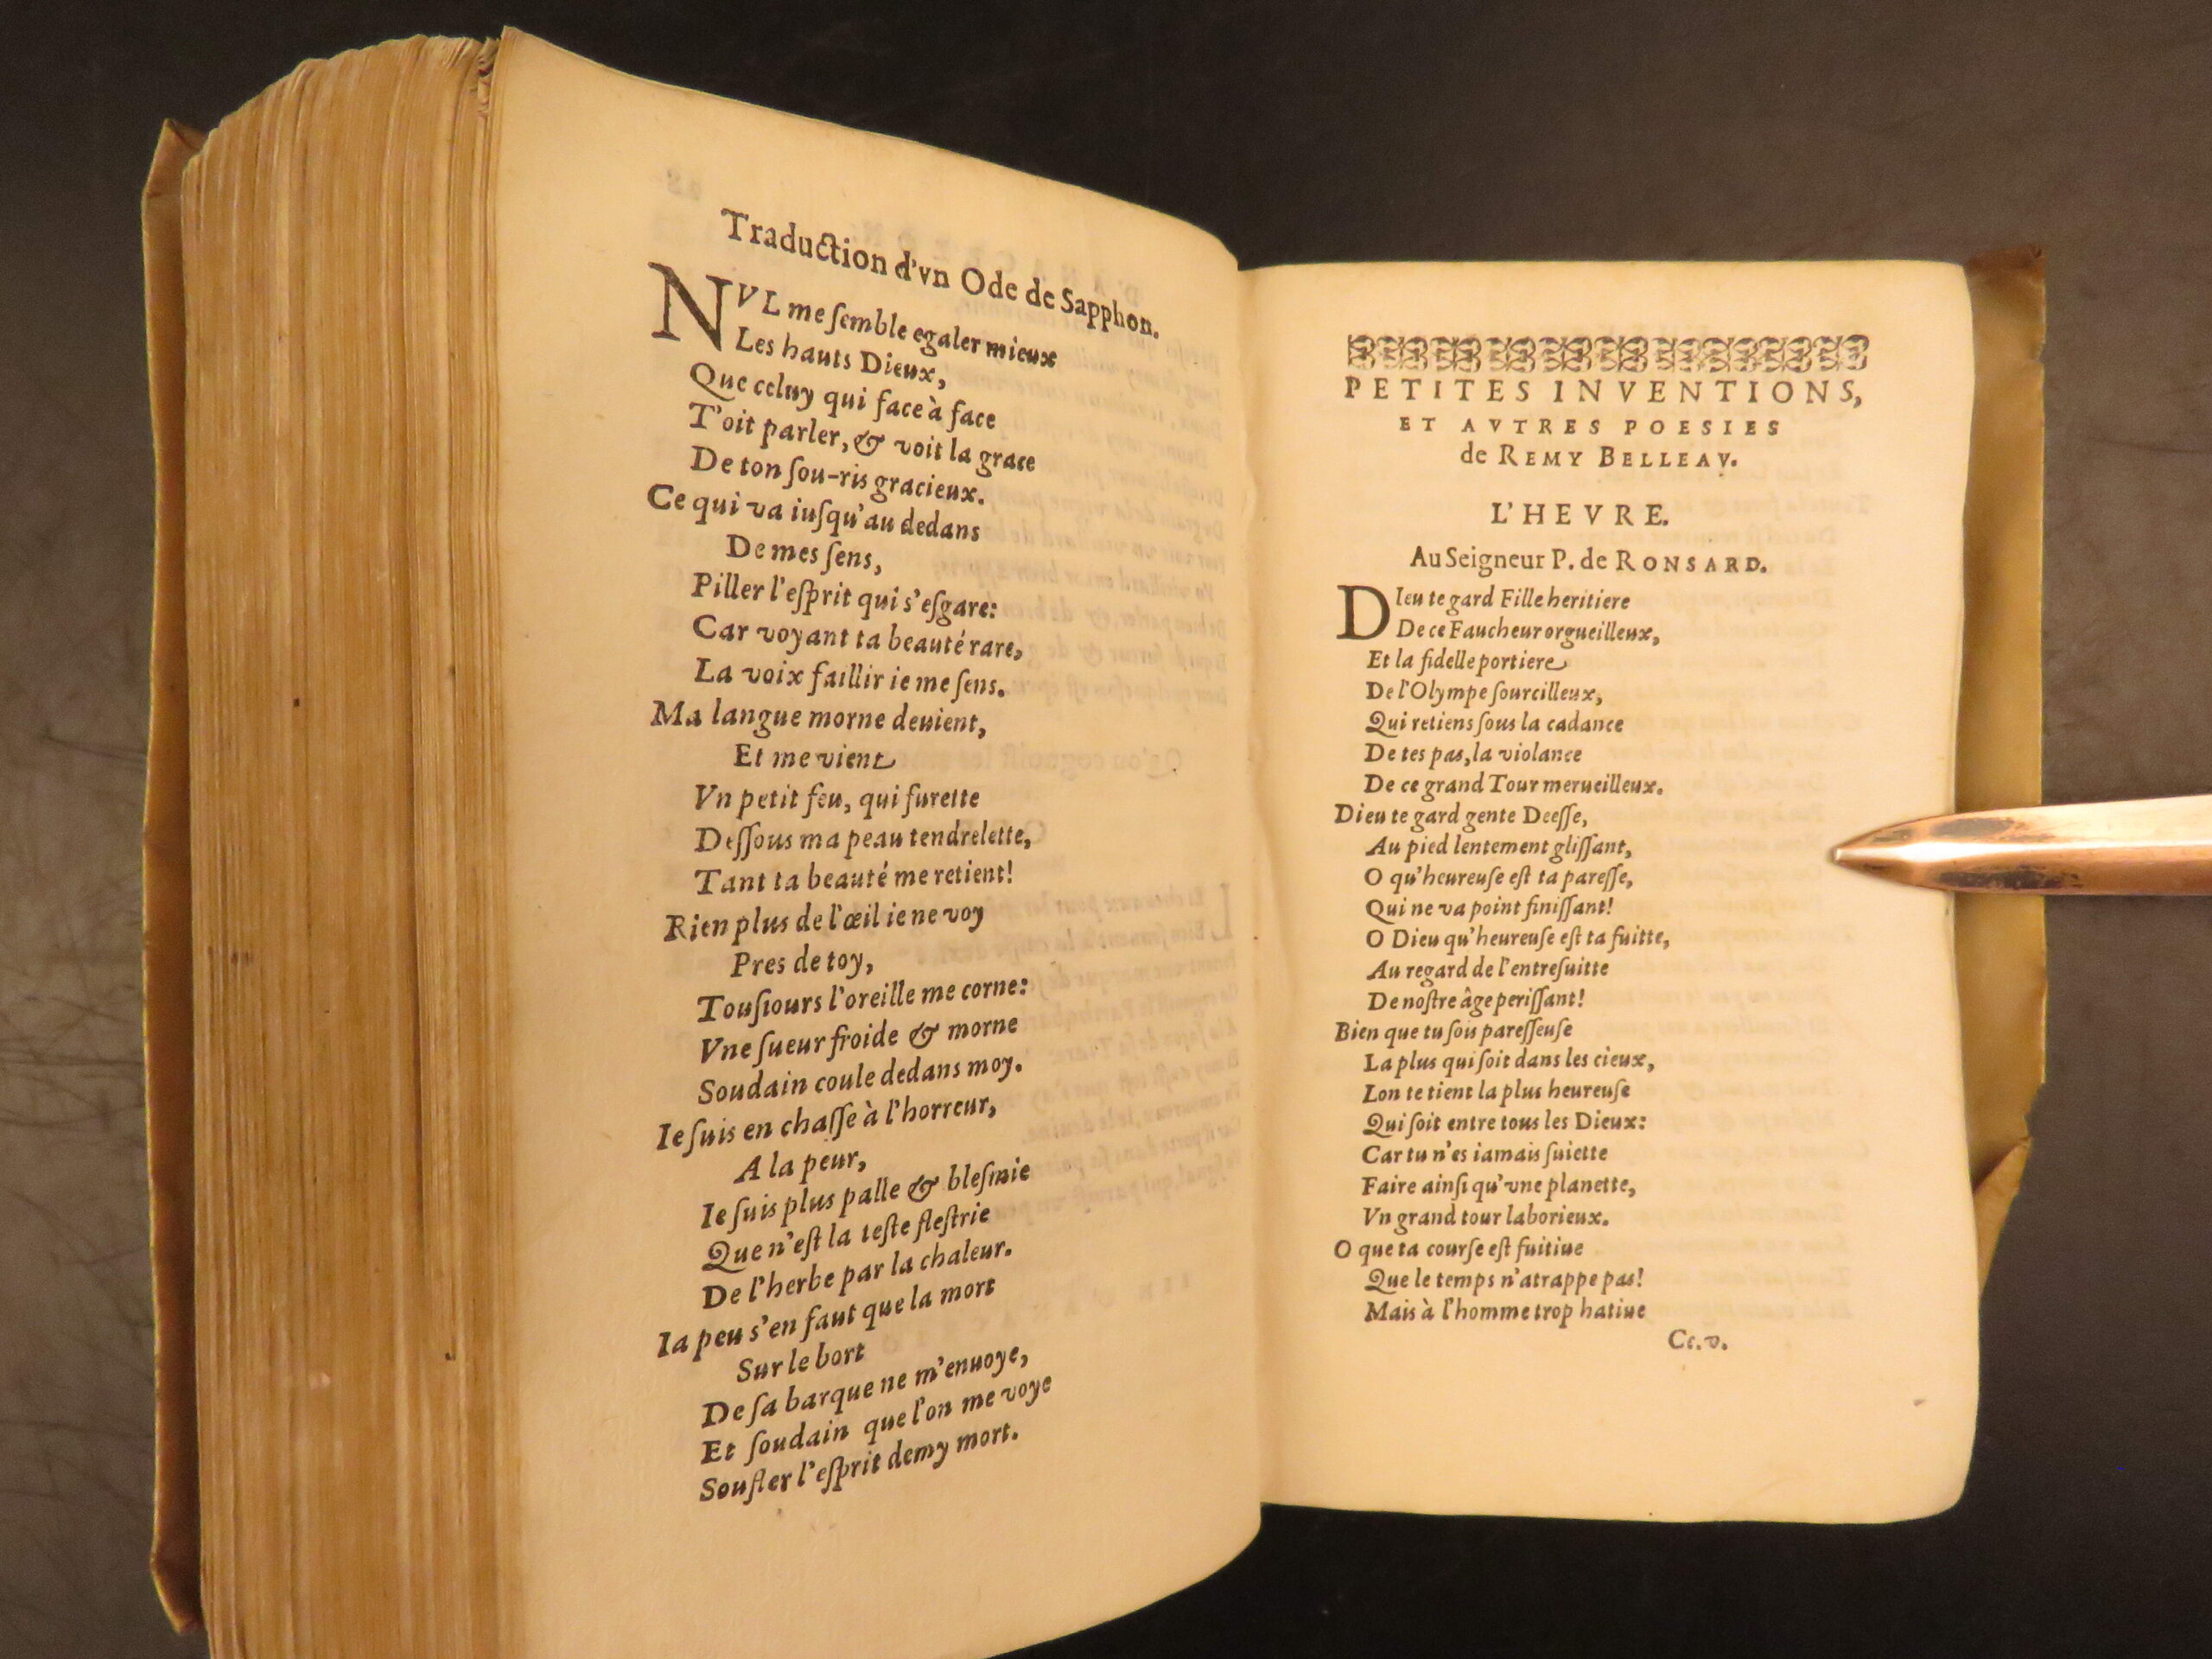 Traduction d'vn Ode de Sapphon.
NVL me ſemble egaler mieux
Les hauts Dieux,
Que celuy qui face à face
T'oit parler, & voit la grace
De ton ſou-ris gracieux.
Ce qui va iuſqu'au dedans
De mes ſens,
Piller l'eſprit qui s'eſgare:
Car voyant ta beauté rare,
La voix faillir ie me ſens.
Ma langue morne deuient,
Et me vient
Vn petit feu, qui furette
Deſſous ma peau tendrelette,
Tant ta beauté me retient!
Rien plus de l'œil ie ne voy
Pres de toy,
Touſiours l'oreille me corne:
Vne ſueur froide & morne
Soudain coule dedans moy.
Ie ſuis en chaſſe à l'horreur,
A la peur,
Ie ſuis plus palle & bleſmie
Que n'eſt la teſte fleſtrie
De l'herbe par la chaleur.
Ia peu s'en faut que la mort
Sur le bort
De ſa barque ne m'enuoye,
Et ſoudain que l'on me voye
Soufler l'eſprit demy mort.
PETITES INVENTIONS,
ET AVTRES POESIES
de REMY BELLEAV.
L'HEVRE.
Au Seigneur P. de RONSARD.
DIeu te gard Fille heritiere
De ce Faucheur orgueilleux,
Et la fidelle portiere
De l'Olympe ſourcilleux,
Qui retiens ſous la cadance
De tes pas, la violance
De ce grand Tour merueilleux.
Dieu te gard gente Deeſſe,
Au pied lentement gliſſant,
O qu'heureuſe eſt ta pareſſe,
Qui ne va point finiſſant!
O Dieu qu'heureuſe eſt ta fuitte,
Au regard de l'entreſuitte
De noſtre âge periſſant!
Bien que tu ſois pareſſeuſe
La plus qui ſoit dans les cieux,
Lon te tient la plus heureuſe
Qui ſoit entre tous les Dieux:
Car tu n'es iamais ſuiette
Faire ainſi qu'vne planette,
Vn grand tour laborieux.
O que ta courſe eſt fuitiue
Que le temps n'atrappe pas!
Mais à l'homme trop hatiue
Cc.v.